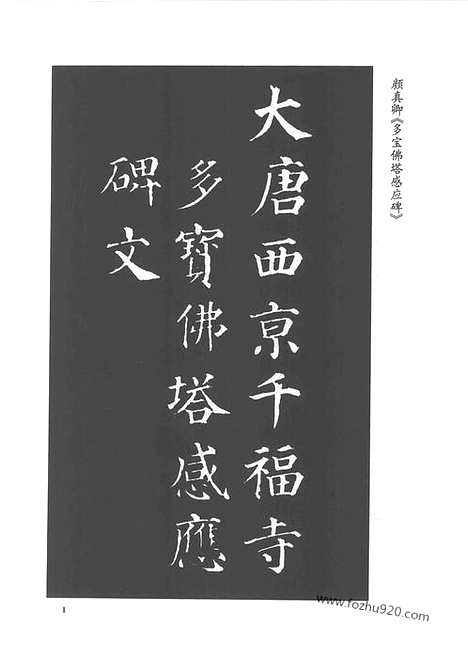 颜真卿《多宝佛塔感应碑》
大唐西京千福寺
多寶佛塔感應
碑文
1
www.fozhu920.com